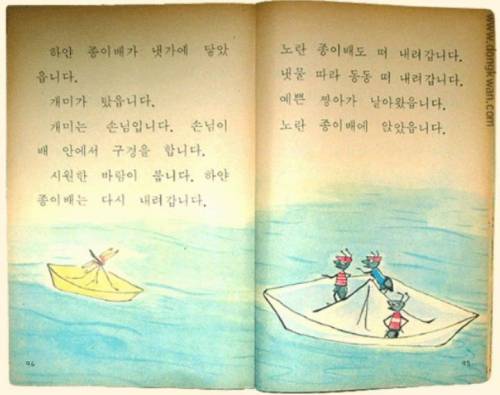 하얀 종이배가 냇가에 닿았
읍니다.
개미가 탔읍니다.
개미는 손님입니다. 손님이
배 안에서 구경을 합니다.
시원한 바람이 붑니다. 하얀
종이배는 다시 내려갑니다.
94
노란 종이배도 떠 내려갑니다.
냇물 따라 동동 떠 내려갑니다.
예쁜 짱아가 날아왔읍니다.
노란 종이배에 앉았읍니다.
95
www.dongkwan.com